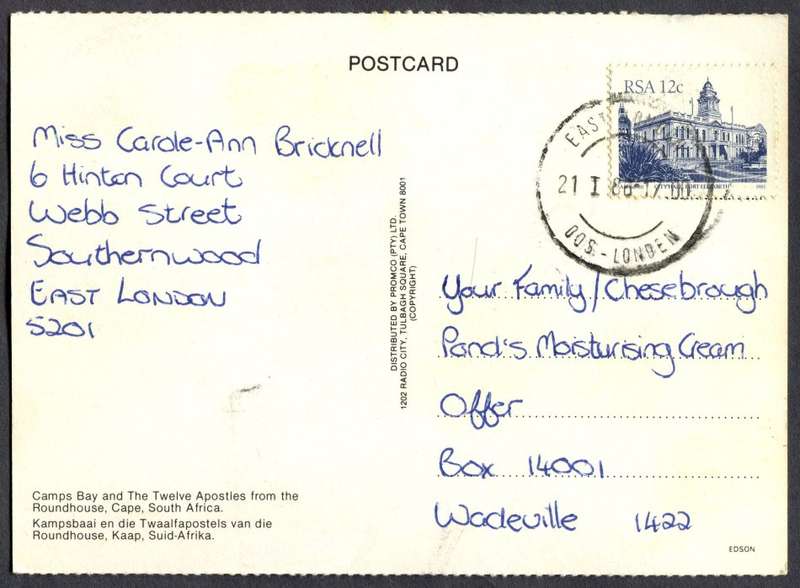 POSTCARD
RSA 12c
21 I 86-17 00
OOS.-LONDEN
Miss Carole-Ann Bricknell
6 Hinton Court
Webb Street
Southernwood
EAST LONDON
5201
DISTRIBUTED BY PROMCO (PTY) LTD.
1202 RADIO CITY, TULBAGH SQUARE, CAPE TOWN 8001
(COPYRIGHT)
Your Family/Chesebrough
Pond's Moisturising Cream
Offer
Box 14001
Wadeville 1422
Camps Bay and The Twelve Apostles from the
Roundhouse, Cape, South Africa.
Kampsbaai en die Twaalfapostels van die
Roundhouse, Kaap, Suid-Afrika.
EDSON